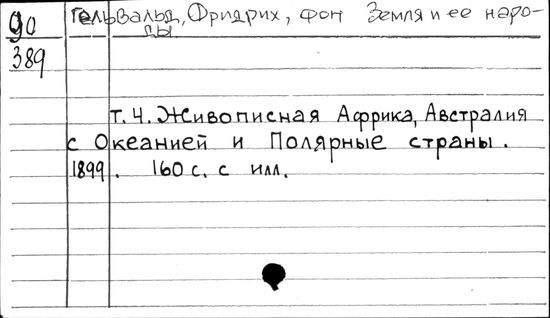 90 Гельвальд, Фридрих, фон Земля и ее наро-
ды
389
т. 4. Живописная Африка, Австралия
с Океанией и Полярные страны.
1899. 160 с. с илл.